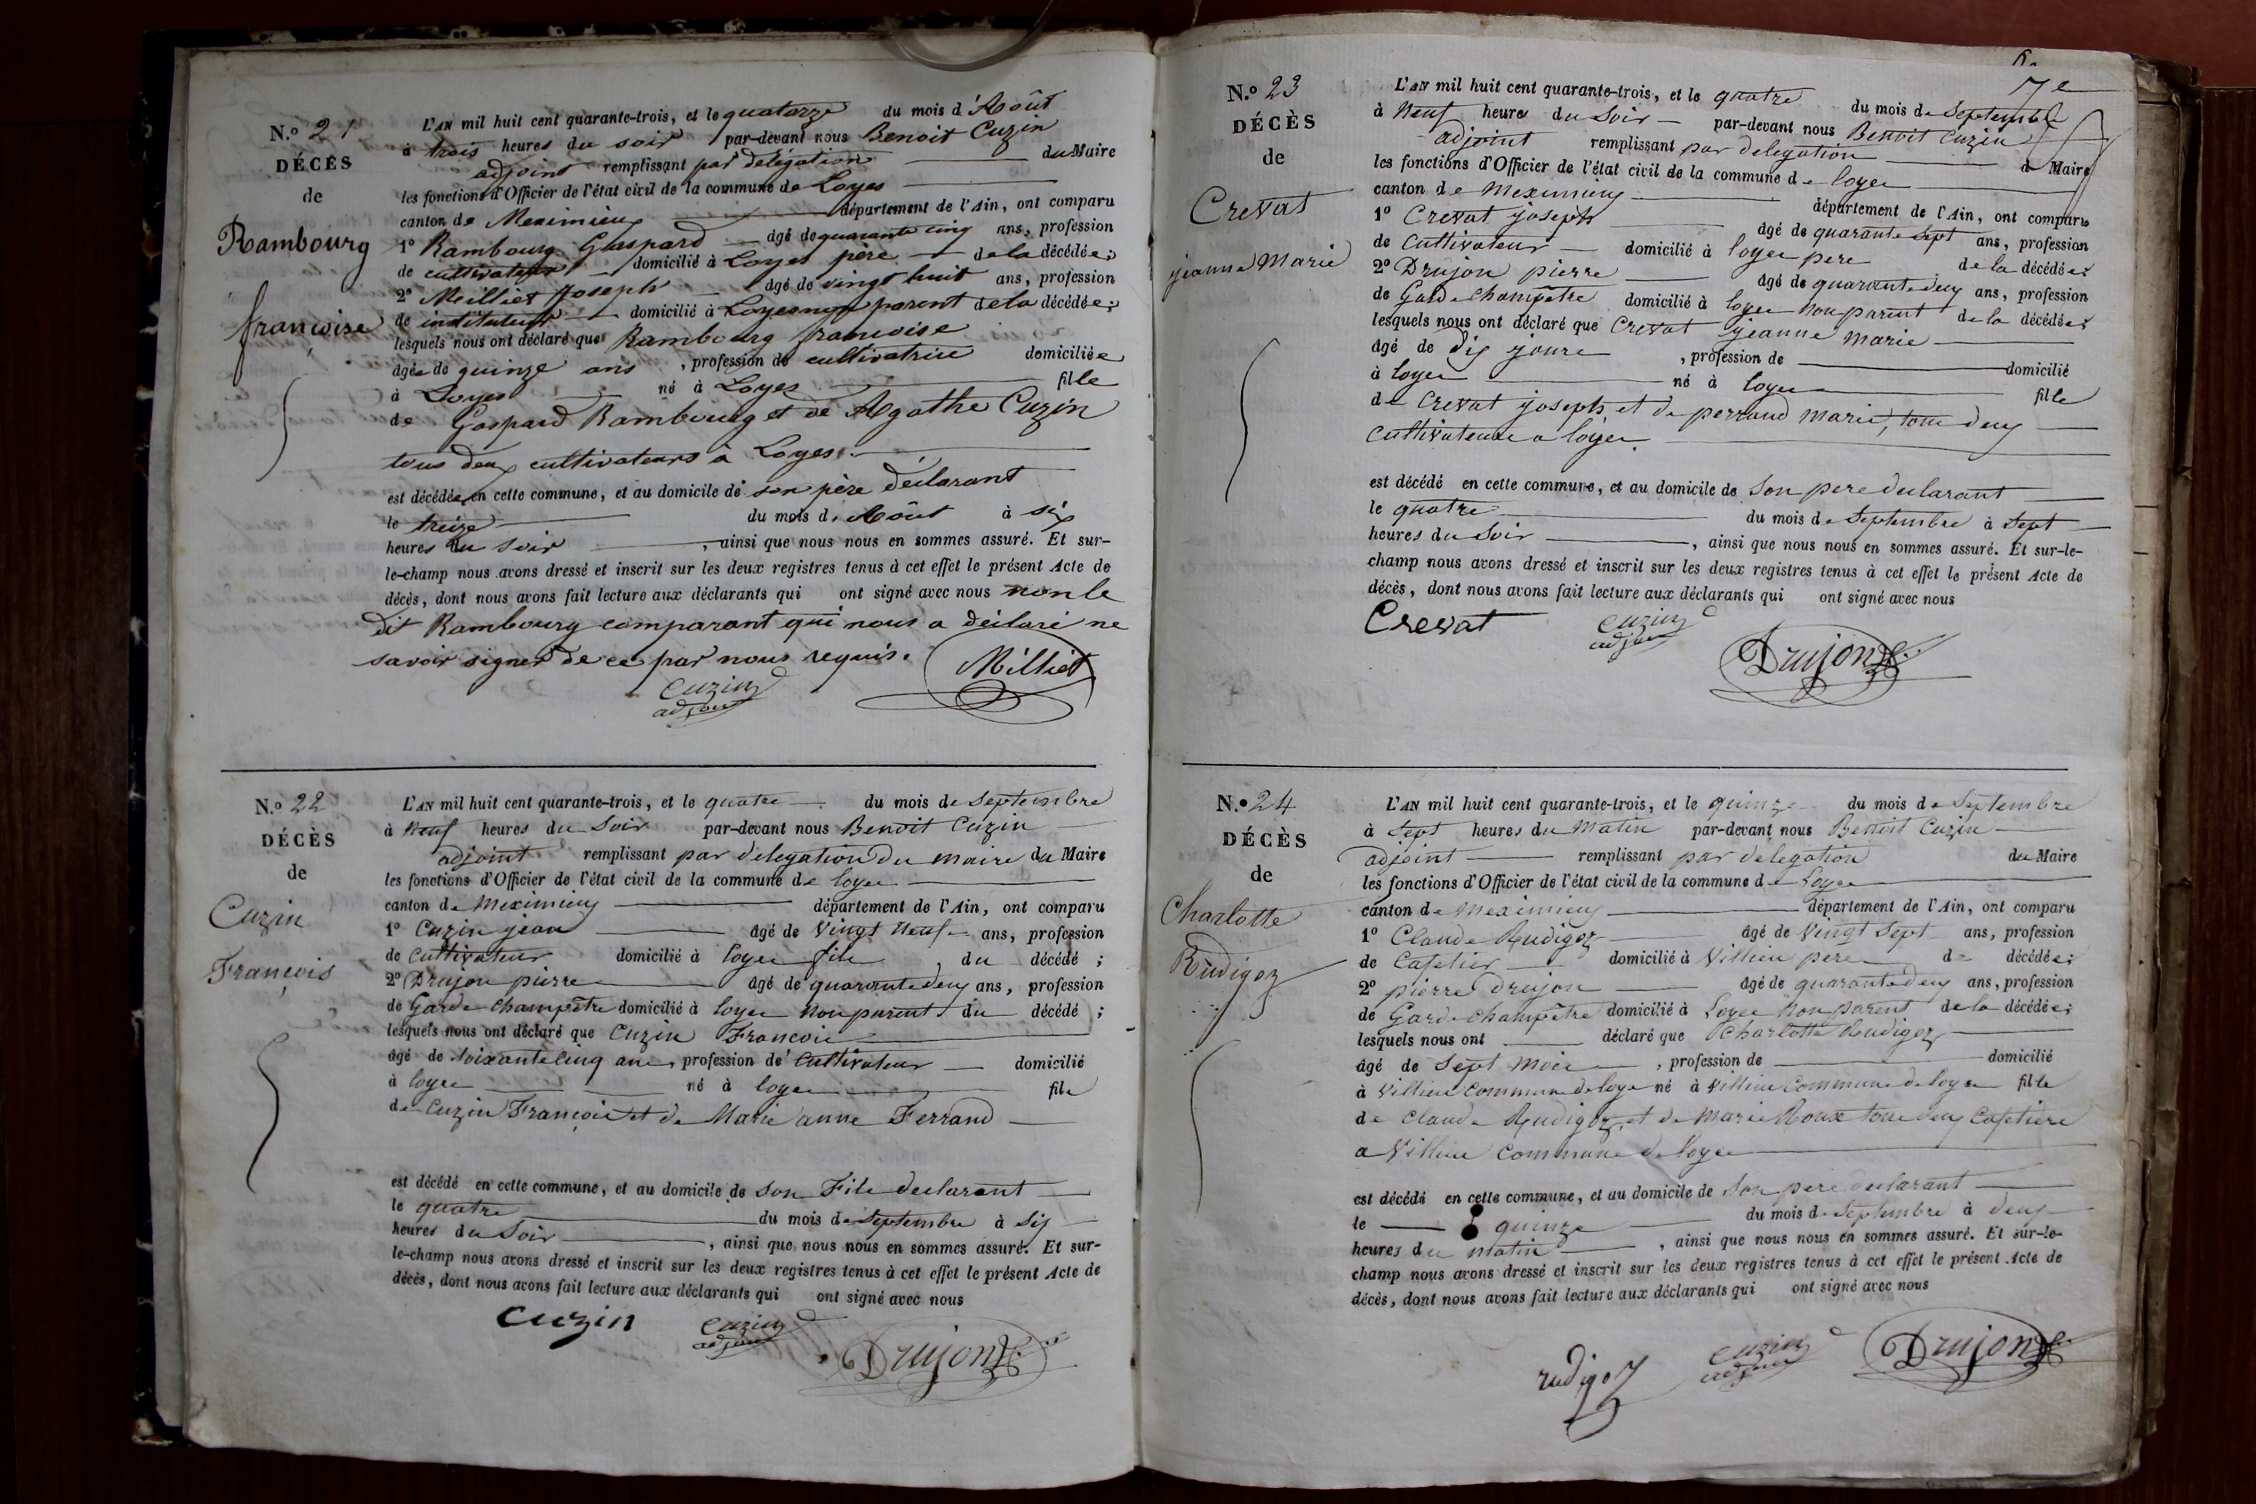 N.o 21
DÉCÈS
de
Rambourg
françoise
L'AN mil huit cent quarante-trois, et le quatorze du mois d'Août
à trois heures du soir par-devant nous Benoit Cuzin
adjoint remplissant par délégation du Maire
les fonctions d'Officier de l'état civil de la commune de Loyes
canton de Meximieux département de l'Ain, ont comparu
1o Rambourg Gaspard âgé de quarante cinq ans, profession
de cultivateur domicilié à Loyes père de la décédée;
2o Milliet Joseph âgé de vingt huit ans, profession
de instituteur domicilié à Loyes non parent de la décédée;
lesquels nous ont déclaré que Rambourg francoise
âgée de quinze ans, profession de cultivatrice domiciliée
à Loyes né à Loyes fille
de Gaspard Rambourg et de Agathe Cuzin
tous deux cultivateurs à Loyes.
est décédée, en cette commune, et au domicile de son père déclarant
le treize du mois d'Août à six
heures du soir, ainsi que nous nous en sommes assuré. Et sur-
le-champ nous avons dressé et inscrit sur les deux registres tenus à cet effet le présent Acte de
décès, dont nous avons fait lecture aux déclarants qui ont signé avec nous non le
dit Rambourg comparant qui nous a déclaré ne
savoir signer de ce par nous requis.
Milliet
Cuzin
adjoint
N.o 22
DÉCÈS
de
Cuzin
François
L'AN mil huit cent quarante-trois, et le quatre du mois de Septembre
à Neuf heures du Soir par-devant nous Benoit Cuzin
adjoint remplissant par delegation du maire du Maire
les fonctions d'Officier de l'état civil de la commune de loyes
canton de meximieux département de l'Ain, ont comparu
1o Cuzin jean âgé de Vingt Neuf ans, profession
de Cultivateur domicilié à loyes fils, du décédé;
2o Drujon pierre âgé de quarante deux ans, profession
de Garde champêtre domicilié à loyes non parent du décédé;
lesquels nous ont déclaré que Cuzin Francois
âgé de soixante cinq ans, profession de Cultivateur domicilié
à loyes né à loyes fils
de Cuzin François et de Marie anne Ferrand
est décédé en cette commune, et au domicile de Son Fils declarant
le quatre du mois de Septembre à Six
heures du Soir, ainsi que nous nous en sommes assuré. Et sur-
le-champ nous avons dressé et inscrit sur les deux registres tenus à cet effet le présent Acte de
décès, dont nous avons fait lecture aux déclarants qui ont signé avec nous
Cuzin
Cuzin
adjoint
Drujon
7e
N.o 23
DÉCÈS
de
Crevat
jeanne Marie
L'AN mil huit cent quarante-trois, et le quatre du mois de Septembre
à Neuf heures du Soir par-devant nous Benoit Cuzin
adjoint remplissant par delegation d Maire
les fonctions d'Officier de l'état civil de la commune de loyes
canton de meximieux département de l'Ain, ont comparu
1o Crevat joseph âgé de quarante Sept ans, profession
de Cultivateur domicilié à loyes pere de la décédée;
2o Drujon pierre âgé de quarante deux ans, profession
de Garde champêtre domicilié à loyes non parent de la décédée;
lesquels nous ont déclaré que Crevat jeanne marie
âgé de dix jours, profession de domicilié
à loyes né à loyes fille
de Crevat joseph et de perraud marie, tous deux
Cultivateurs a loyes
est décédé en cette commune, et au domicile de Son pere declarant
le quatre du mois de Septembre à Sept
heures du Soir, ainsi que nous nous en sommes assuré. Et sur-le-
champ nous avons dressé et inscrit sur les deux registres tenus à cet effet le présent Acte de
décès, dont nous avons fait lecture aux déclarants qui ont signé avec nous
Crevat
Cuzin
adjoint
Drujon
N.o 24
DÉCÈS
de
Charlotte
Rudigoz
L'AN mil huit cent quarante-trois, et le quinze du mois de Septembre
à Sept heures du Matin par-devant nous Benoit Cuzin
adjoint remplissant par delegation du Maire
les fonctions d'Officier de l'état civil de la commune de Loyes
canton de Meximieux département de l'Ain, ont comparu
1o Claude Rudigoz âgé de Vingt Sept ans, profession
de Cafetier domicilié à Villieu pere de décédée;
2o pierre Drujon âgé de quarante deux ans, profession
de Garde champêtre domicilié à Loyes non parent de la décédée;
lesquels nous ont déclaré que Charlotte Rudigoz
âgé de Sept mois, profession de domicilié
à Villieu commune de loye né à Villieu commune de loyes fille
de Claude Rudigoz, et de marie Roux tous deux Cafetiers
a Villieu commune de loyes
est décédé en cette commune, et au domicile de Son pere declarant
le quinze du mois de Septembre à deux
heures du matin, ainsi que nous nous en sommes assuré. Et sur-le-
champ nous avons dressé et inscrit sur les deux registres tenus à cet effet le présent Acte de
décès, dont nous avons fait lecture aux déclarants qui ont signé avec nous
rudigoz
Cuzin
adjoint
Drujon